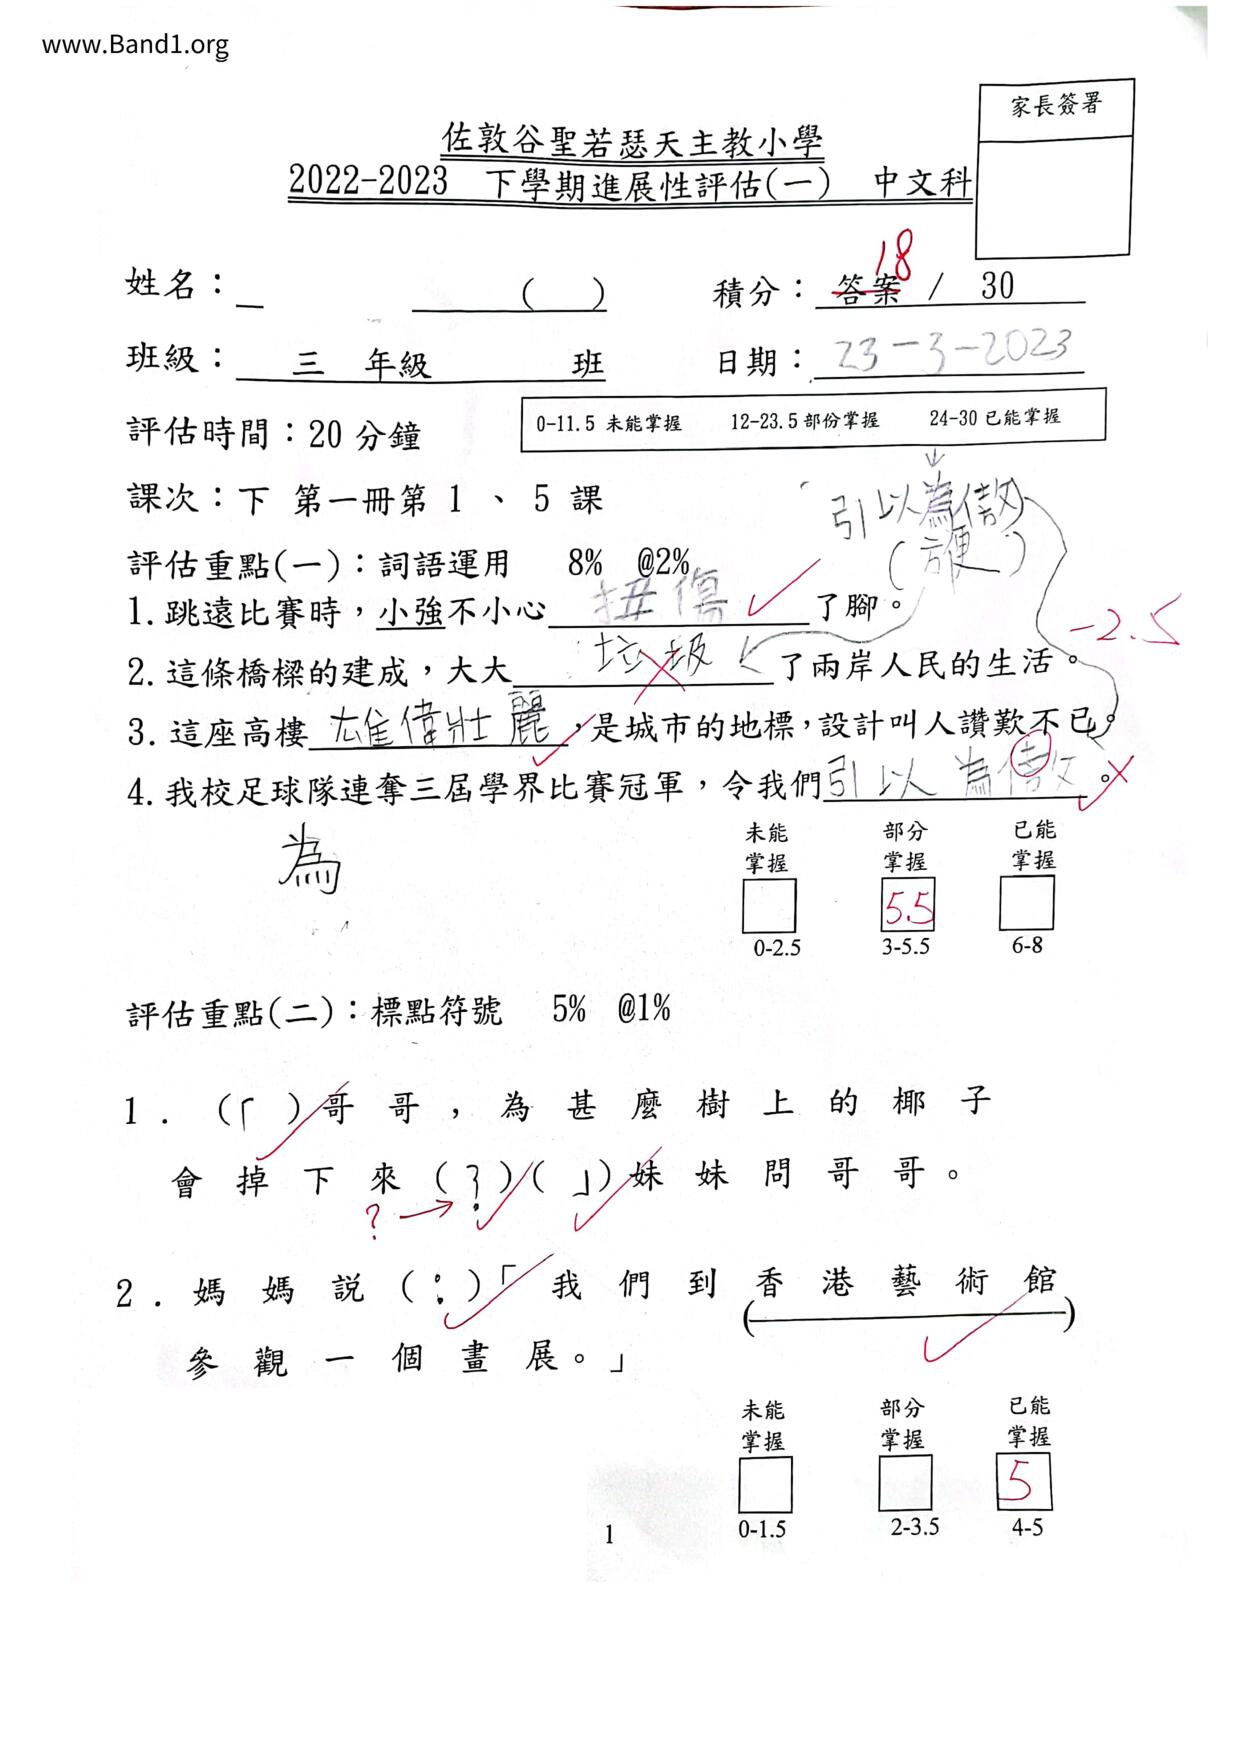 www.Band1.org
家長簽署
佐敦谷聖若瑟天主教小學
2022-2023 下學期進展性評估(一) 中文科
18
姓名：＿ ( ) 積分：答案 / 30
班級： 三 年級 班 日期：23-3-2023
評估時間：20 分鐘
0-11.5 未能掌握 12-23.5 部份掌握 24-30 已能掌握
課次：下 第一冊第 1 、 5 課
引以為傲
(方便)
評估重點(一)：詞語運用 8% @2%
1. 跳遠比賽時，小強不小心扭傷了腳。
-2.5
2. 這條橋樑的建成，大大垃圾了兩岸人民的生活。
3. 這座高樓雄偉壯麗，是城市的地標，設計叫人讚歎不已。
4. 我校足球隊連奪三屆學界比賽冠軍，令我們引以為傲。
為
未能掌握 部分掌握 已能掌握
5.5
0-2.5 3-5.5 6-8
評估重點(二)：標點符號 5% @1%
1. (「 )哥哥，為甚麼樹上的椰子
會掉下來(？)( 」)妹妹問哥哥。
? →
2. 媽媽説(：)「我們到香港藝術館
( )
參觀一個畫展。」
未能掌握 部分掌握 已能掌握
5
0-1.5 2-3.5 4-5
1